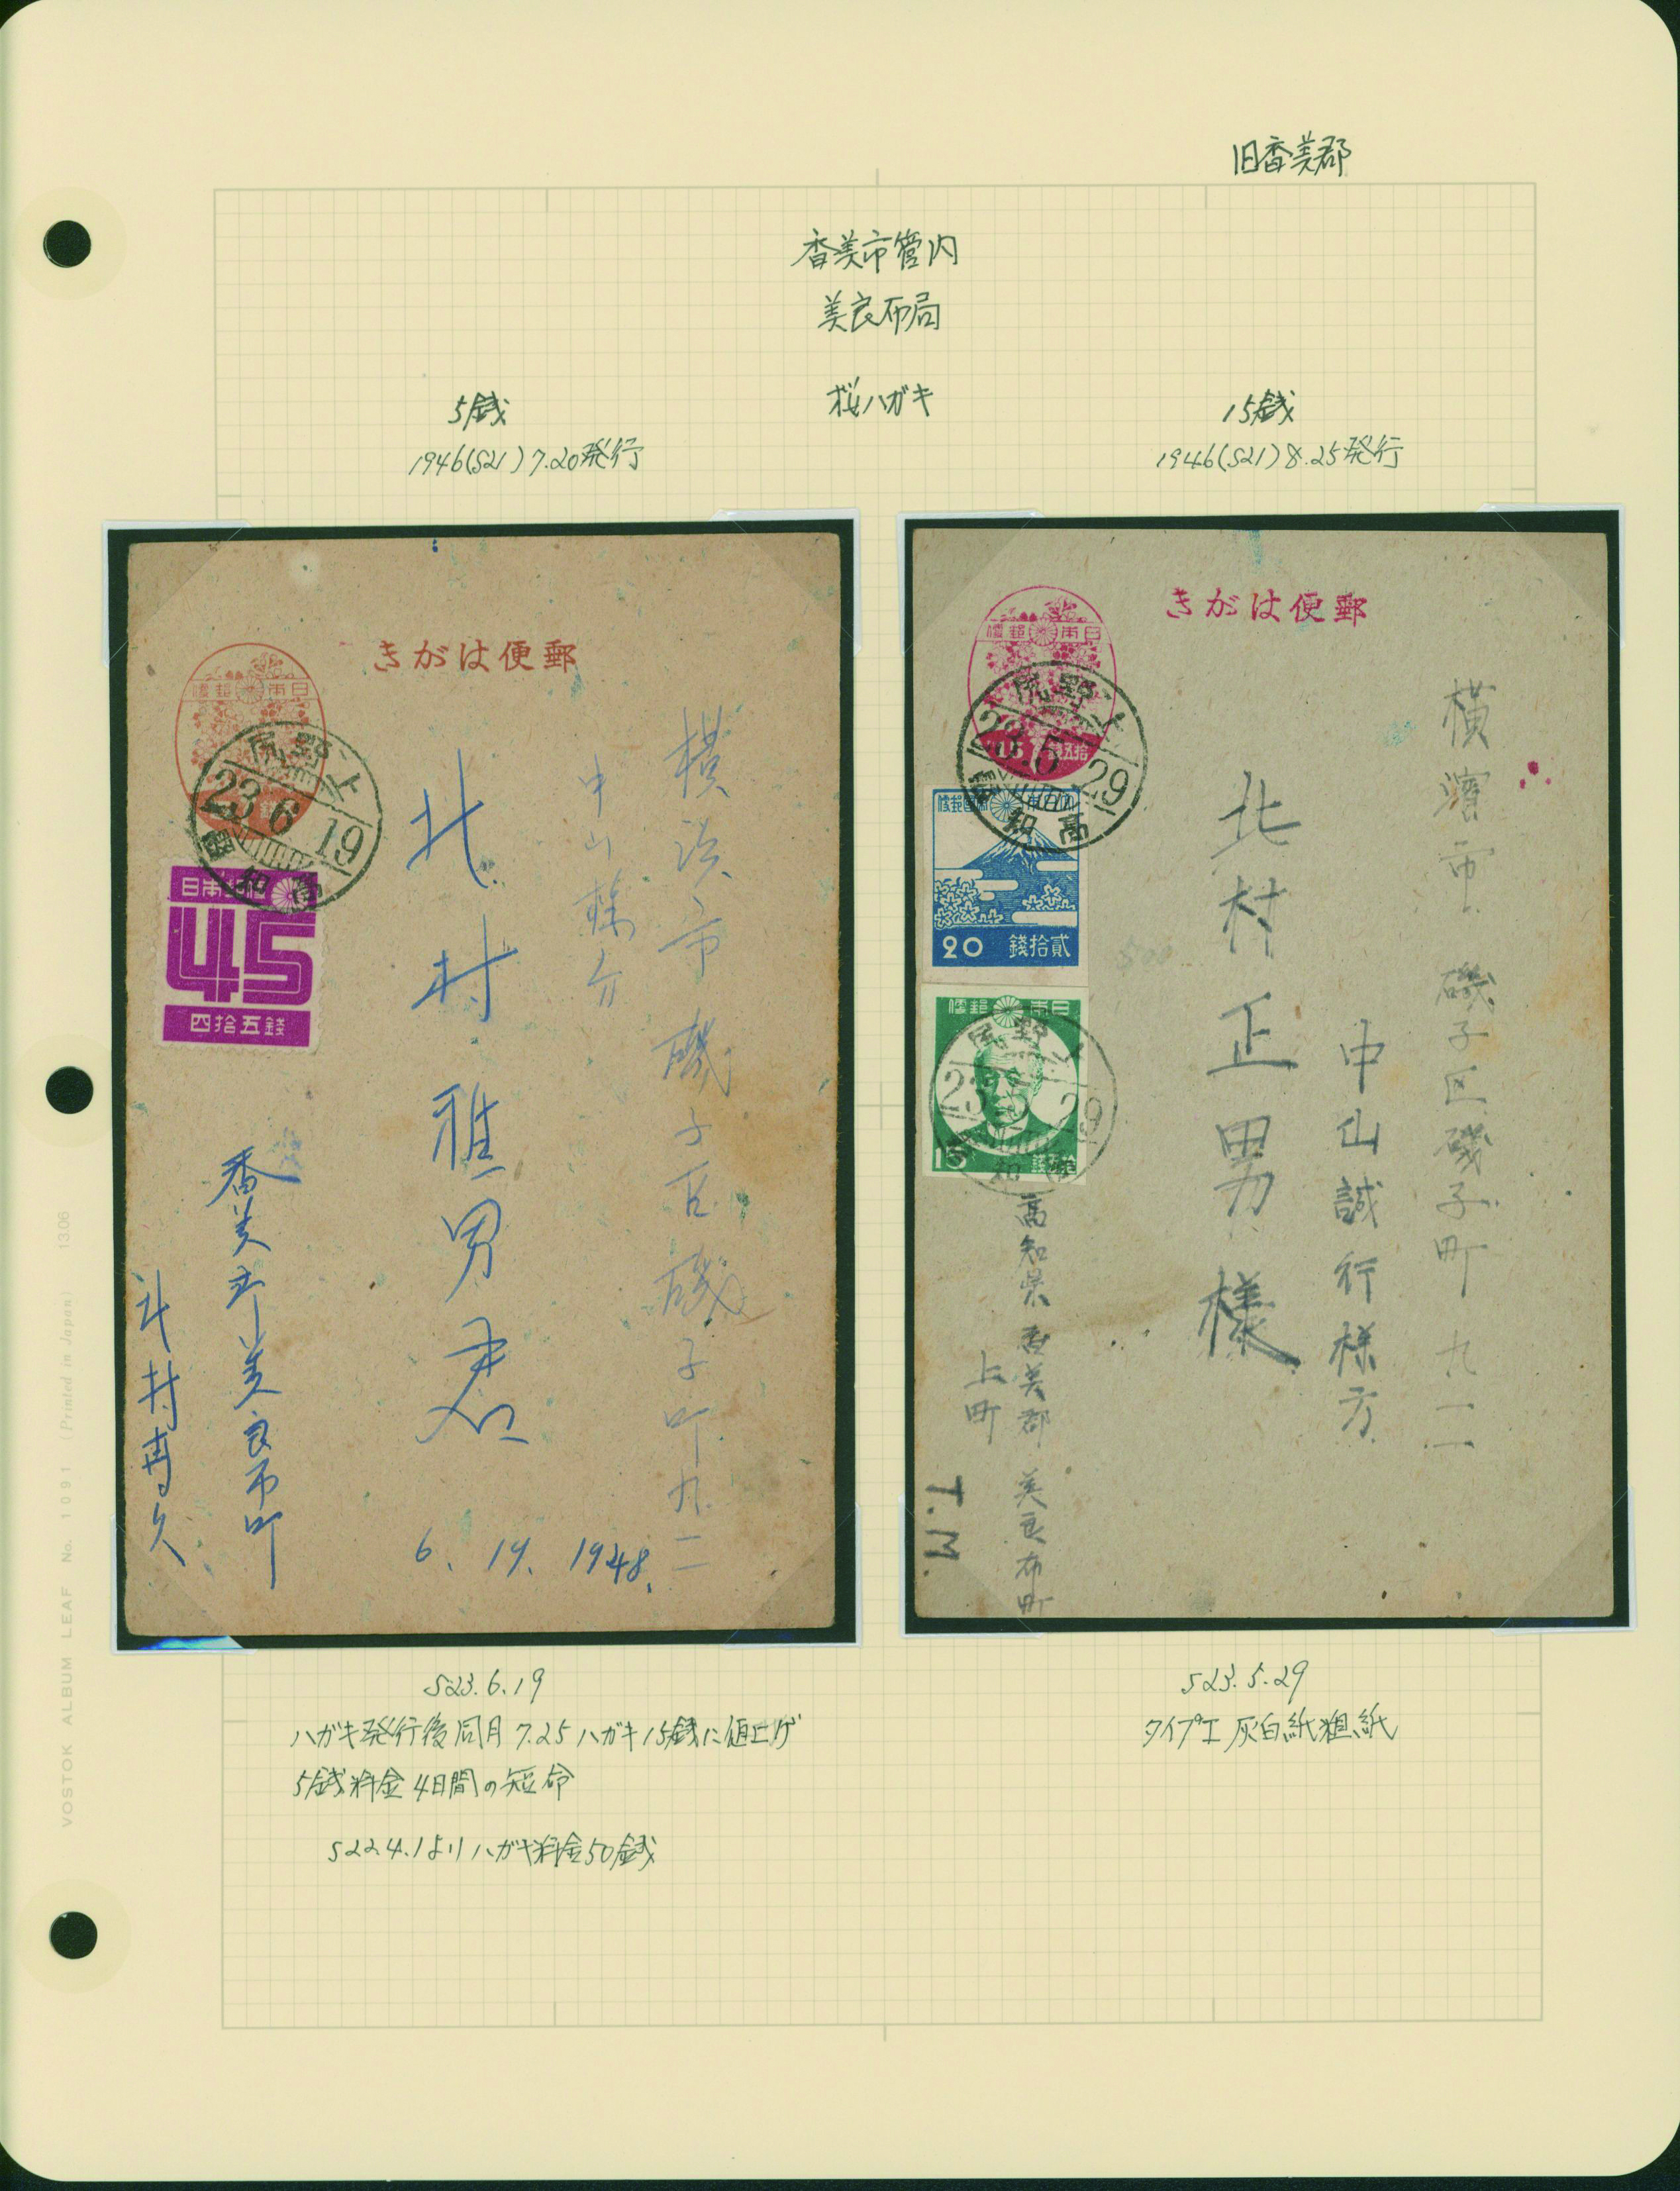 旧香美郡
香美市管内
美良布局
桜ハガキ
5銭
1946(S21)7.20発行
15銭
1946(S21)8.25発行
きがは便郵
便郵本日
上野尻
23.6.19
高知
日本郵便
45
四拾五銭
横浜市磯子区磯子町九二
北村雅男君
香美郡美良布町
北村
6. 19. 1948.
きがは便郵
便郵本日
15
銭五拾
上野尻
23.5.29
高知
20
銭拾貳
便郵本日
上野尻
23
29
横濱市磯子区磯子町九二一
中山誠行様方
北村正男様
高知県香美郡美良布町
上町
T.M.
S23.6.19
ハガキ発行後同月7.25ハガキ15銭に値上げ
5銭料金4日間の短命
S22.4.1よりハガキ料金50銭
S23.5.29
タイプI 灰白紙粗紙
VOSTOK ALBUM LEAF No. 1091 (Printed in Japan) 1306